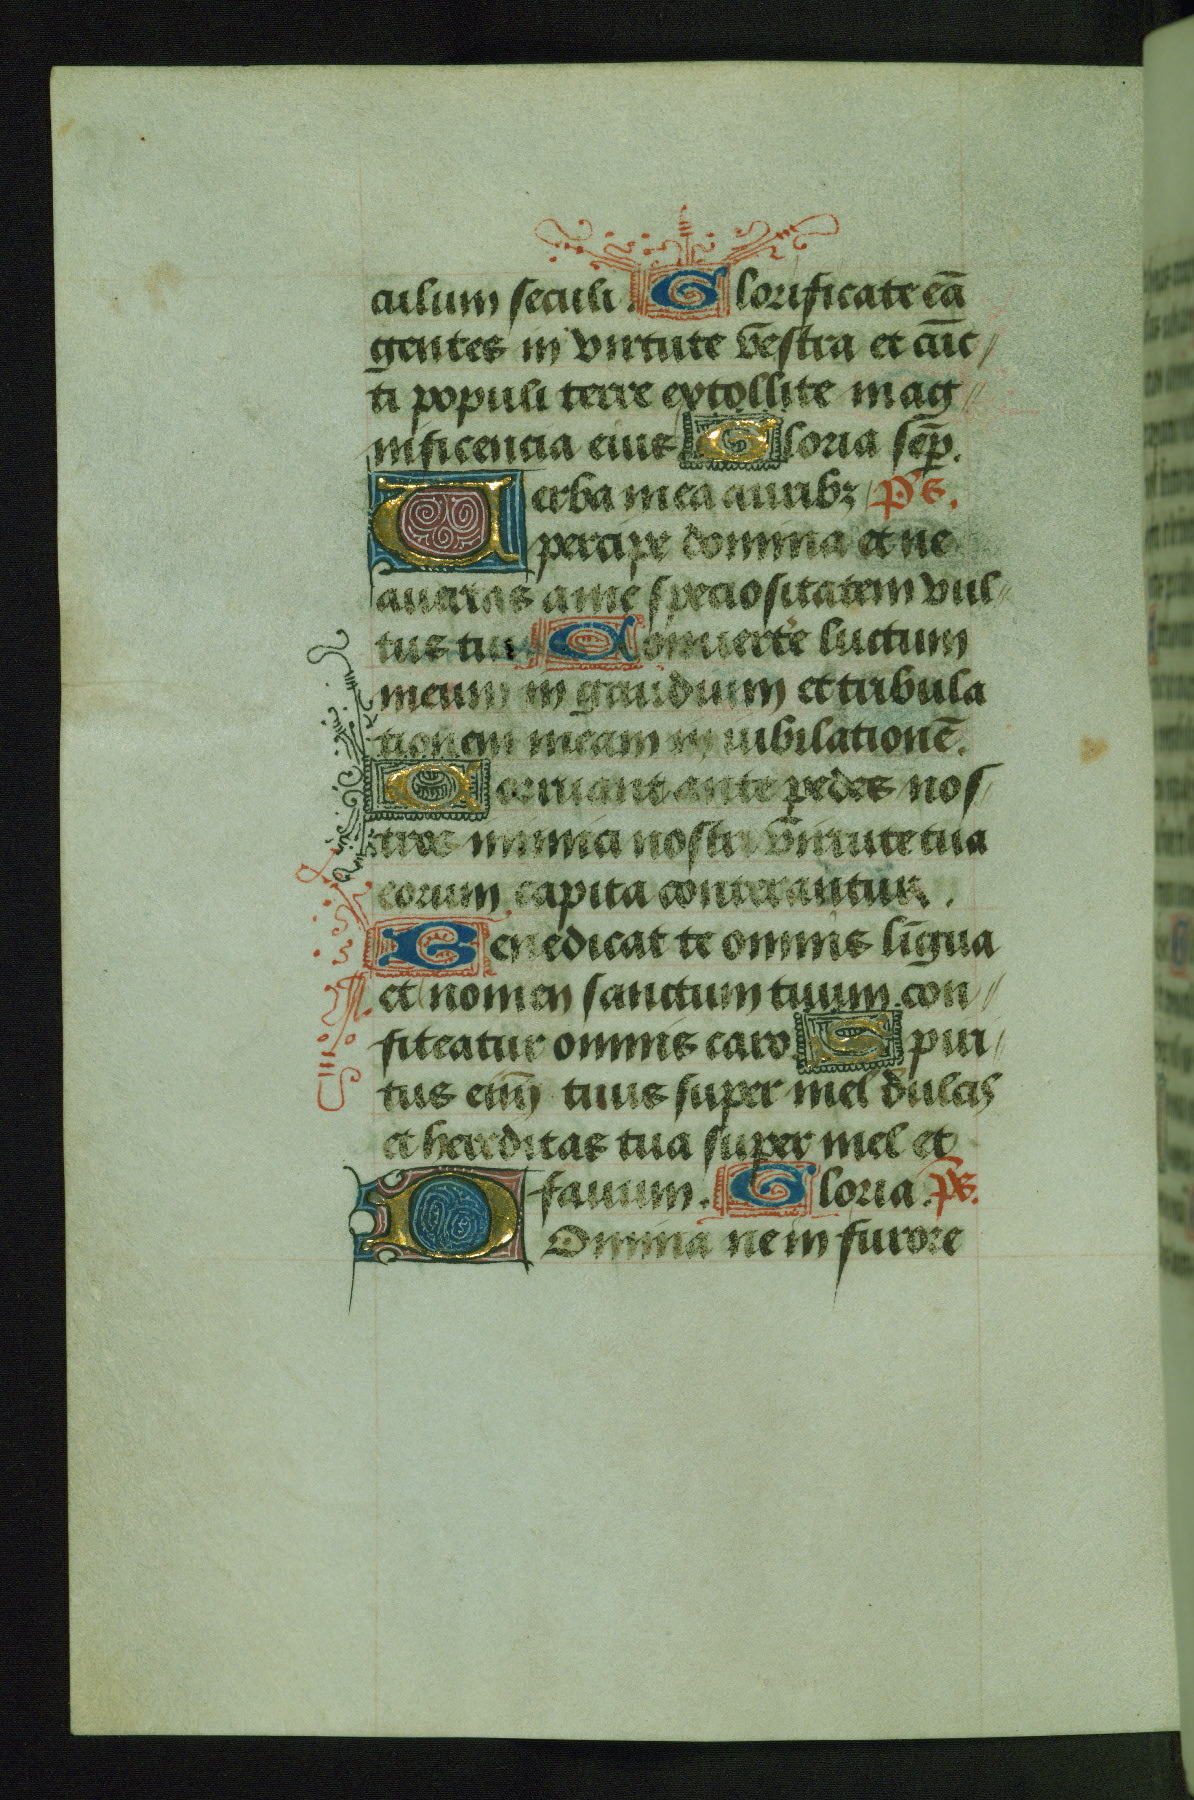 culum seculi. Glorificate eā
gentes in virtute vestra et cūc
ti populi terre extollite mag
nificencia eius Gloria sēp.
Verba mea auribꝫ Ps.
percipe domina et ne
auertas a me speciositatem vul
tus tui Conuerte luctum
meum in gaudium et tribula
tionem meam in iubilationē.
Corruant ante pedes nos
tros inimici nostri virtute tua
eorum capita conterantur.
Benedicat te omnis lingua
et nomen sanctum tuum con
fiteatur omnis caro Spiri
tus enī tuus super mel dulcis
et hereditas tua super mel et
fauum. Gloria. Ps.
Domina ne in furore